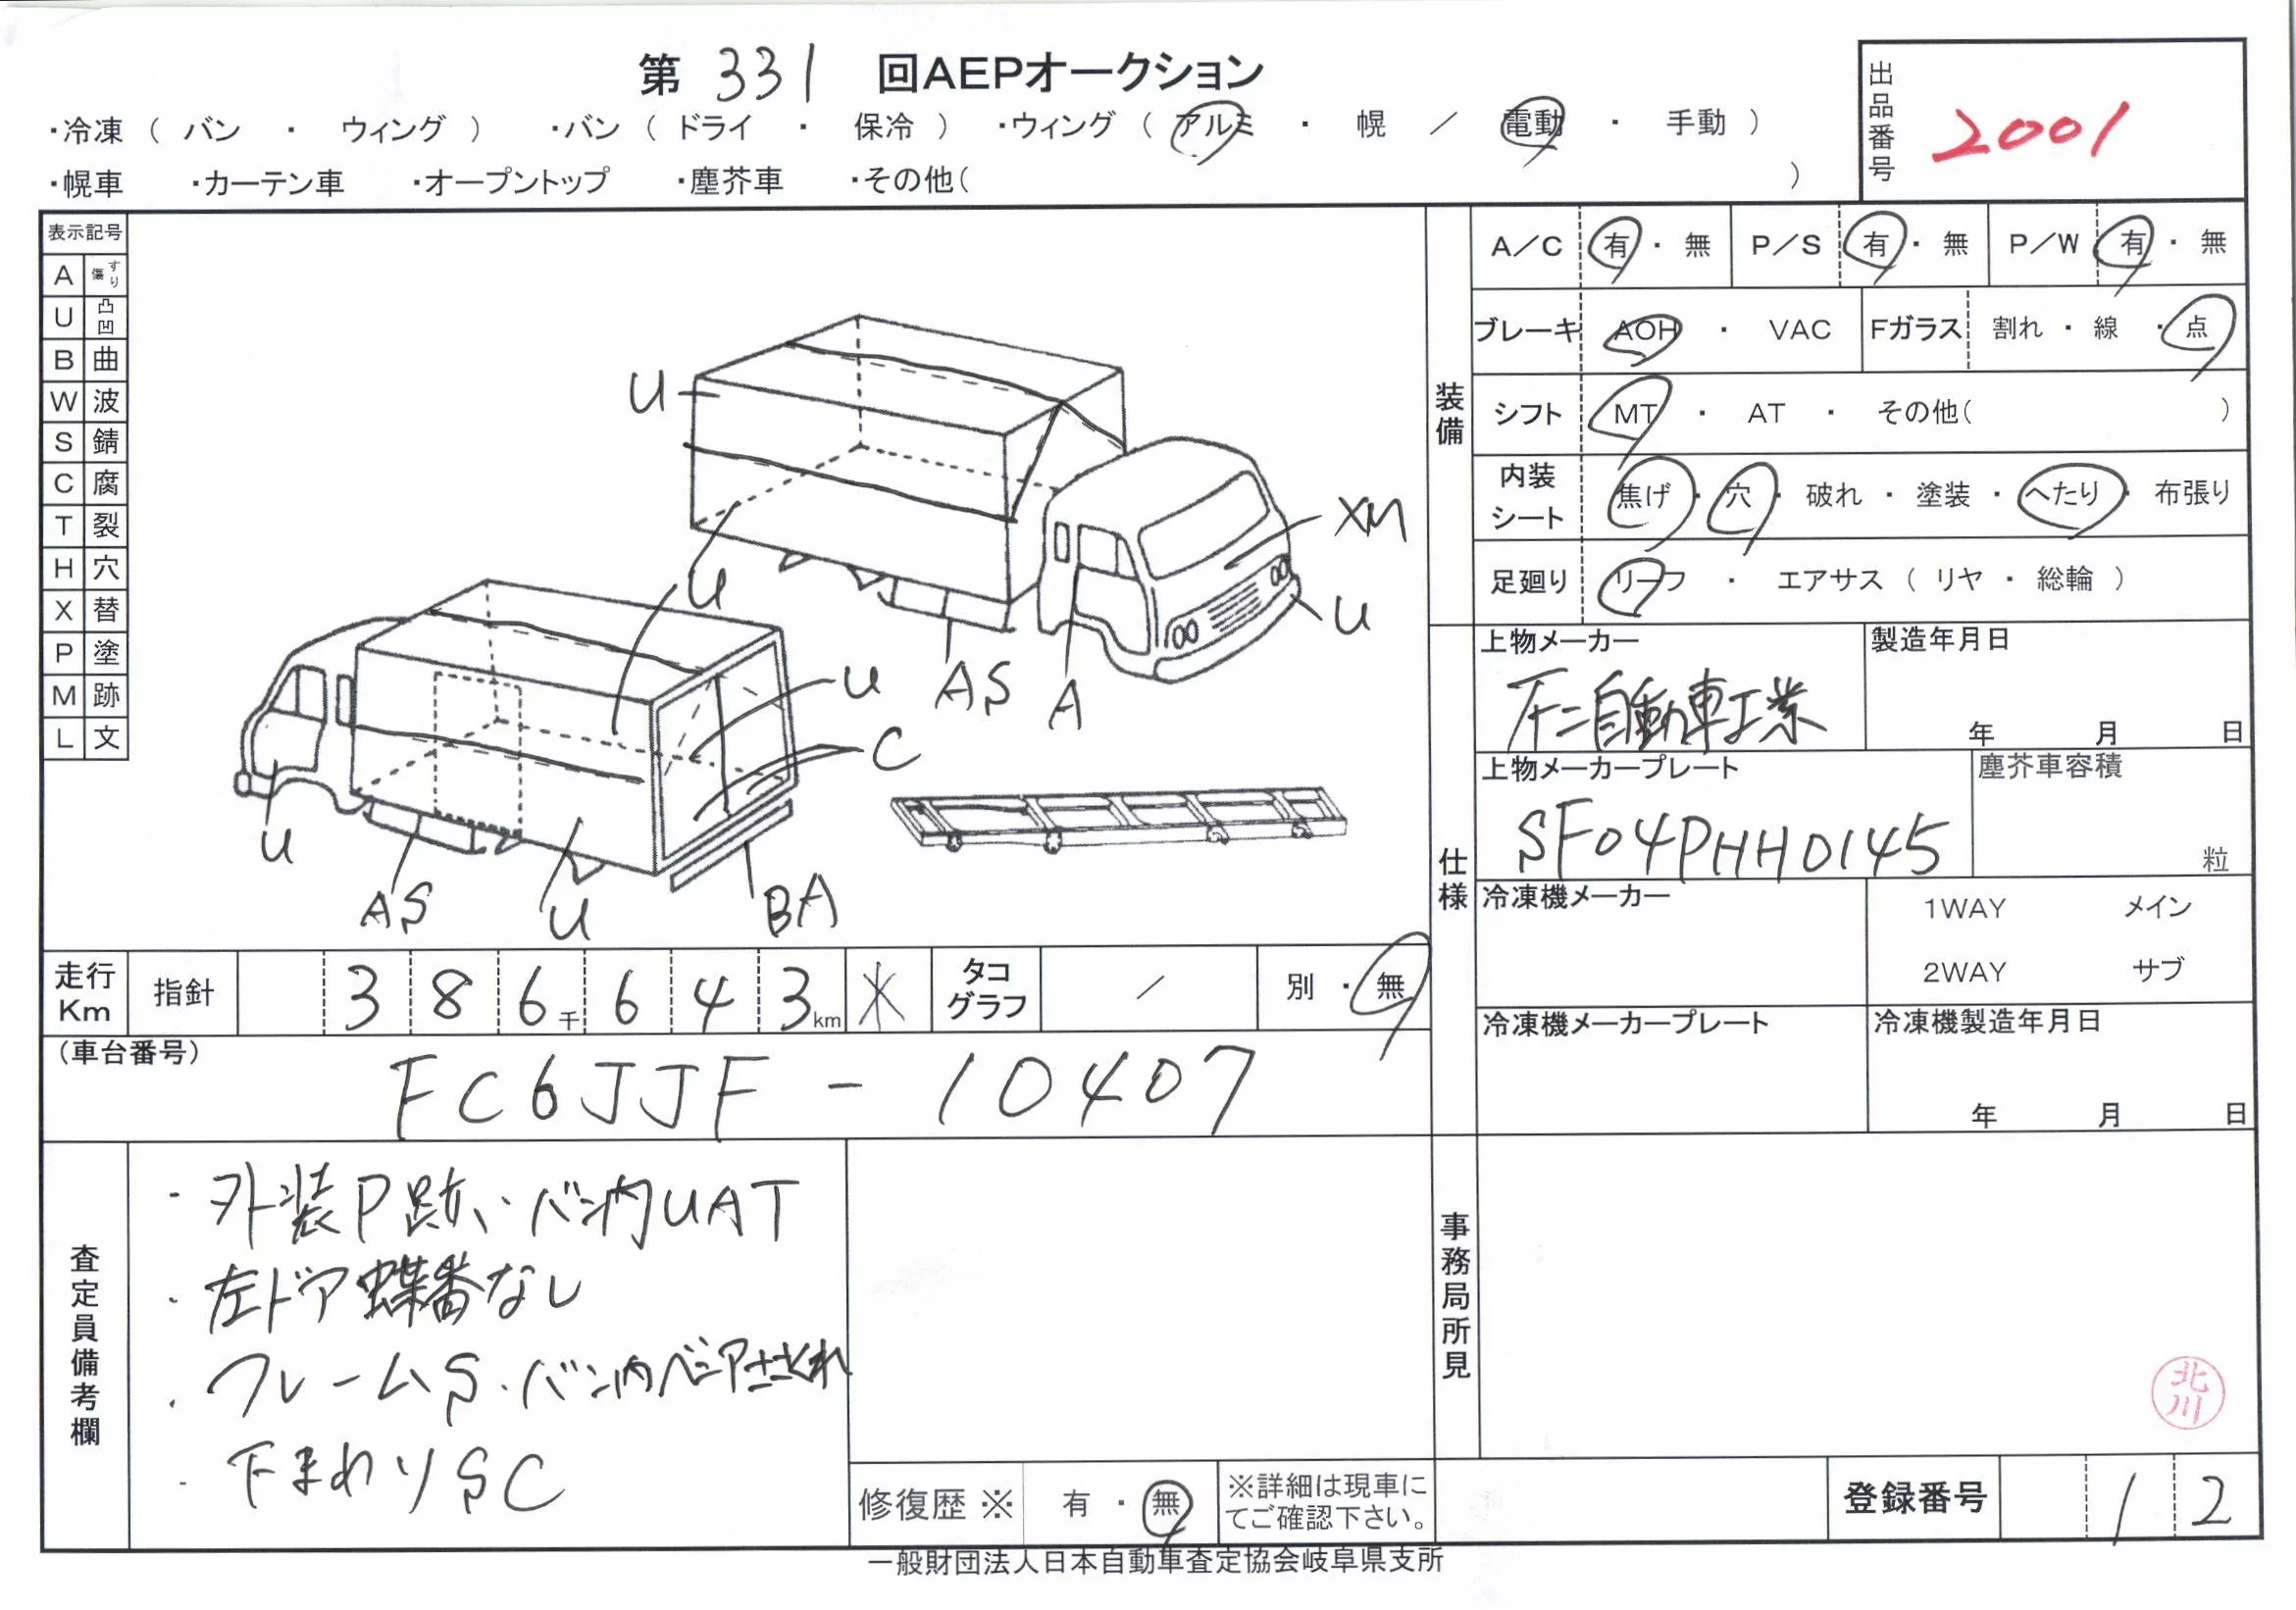 第 331 回AEPオークション
・冷凍 ( バン ・ ウィング ) ・バン ( ドライ ・ 保冷 ) ・ウィング ( アルミ ・ 幌 ／ 電動 ・ 手動 )
・幌車 ・カーテン車 ・オープントップ ・塵芥車 ・その他( )
出品番号 2001
表示記号
A すり傷
U 凸凹
B 曲
W 波
S 錆
C 腐
T 裂
H 穴
X 替
P 塗
M 跡
L 文
U
XM
U
U
AS
A
U
C
U
AS
U
BA
装備
A／C 有 ・ 無 P／S 有 ・ 無 P／W 有 ・ 無
ブレーキ AOH ・ VAC Fガラス 割れ ・ 線 ・ 点
シフト MT ・ AT ・ その他( )
内装シート 焦げ ・ 穴 ・ 破れ ・ 塗装 ・ へたり ・ 布張り
足廻り リーフ ・ エアサス ( リヤ ・ 総輪 )
仕様
上物メーカー 製造年月日
自動車工業 年 月 日
上物メーカープレート 塵芥車容積
SF04PHH0145 粒
冷凍機メーカー 1WAY メイン
2WAY サブ
冷凍機メーカープレート 冷凍機製造年月日
年 月 日
走行Km 指針 3 8 6千 6 4 3km ＊ タコグラフ ／ 別 ・ 無
(車台番号)
FC6JJF - 10407
査定員備考欄
・外装P跡、・バン内UAT
・左ドア蝶番なし
・フレームS・バン内ベニア
・下まわりSC
修復歴 ※ 有 ・ 無 ※詳細は現車にてご確認下さい。
事務局所見
北川
登録番号 1 2
一般財団法人日本自動車査定協会岐阜県支所